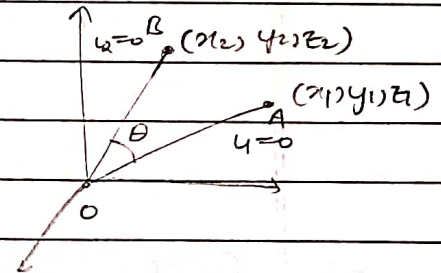 u=0 B (x2, y2, z2)
(x1, y1, z1)
A
θ
u=0
O